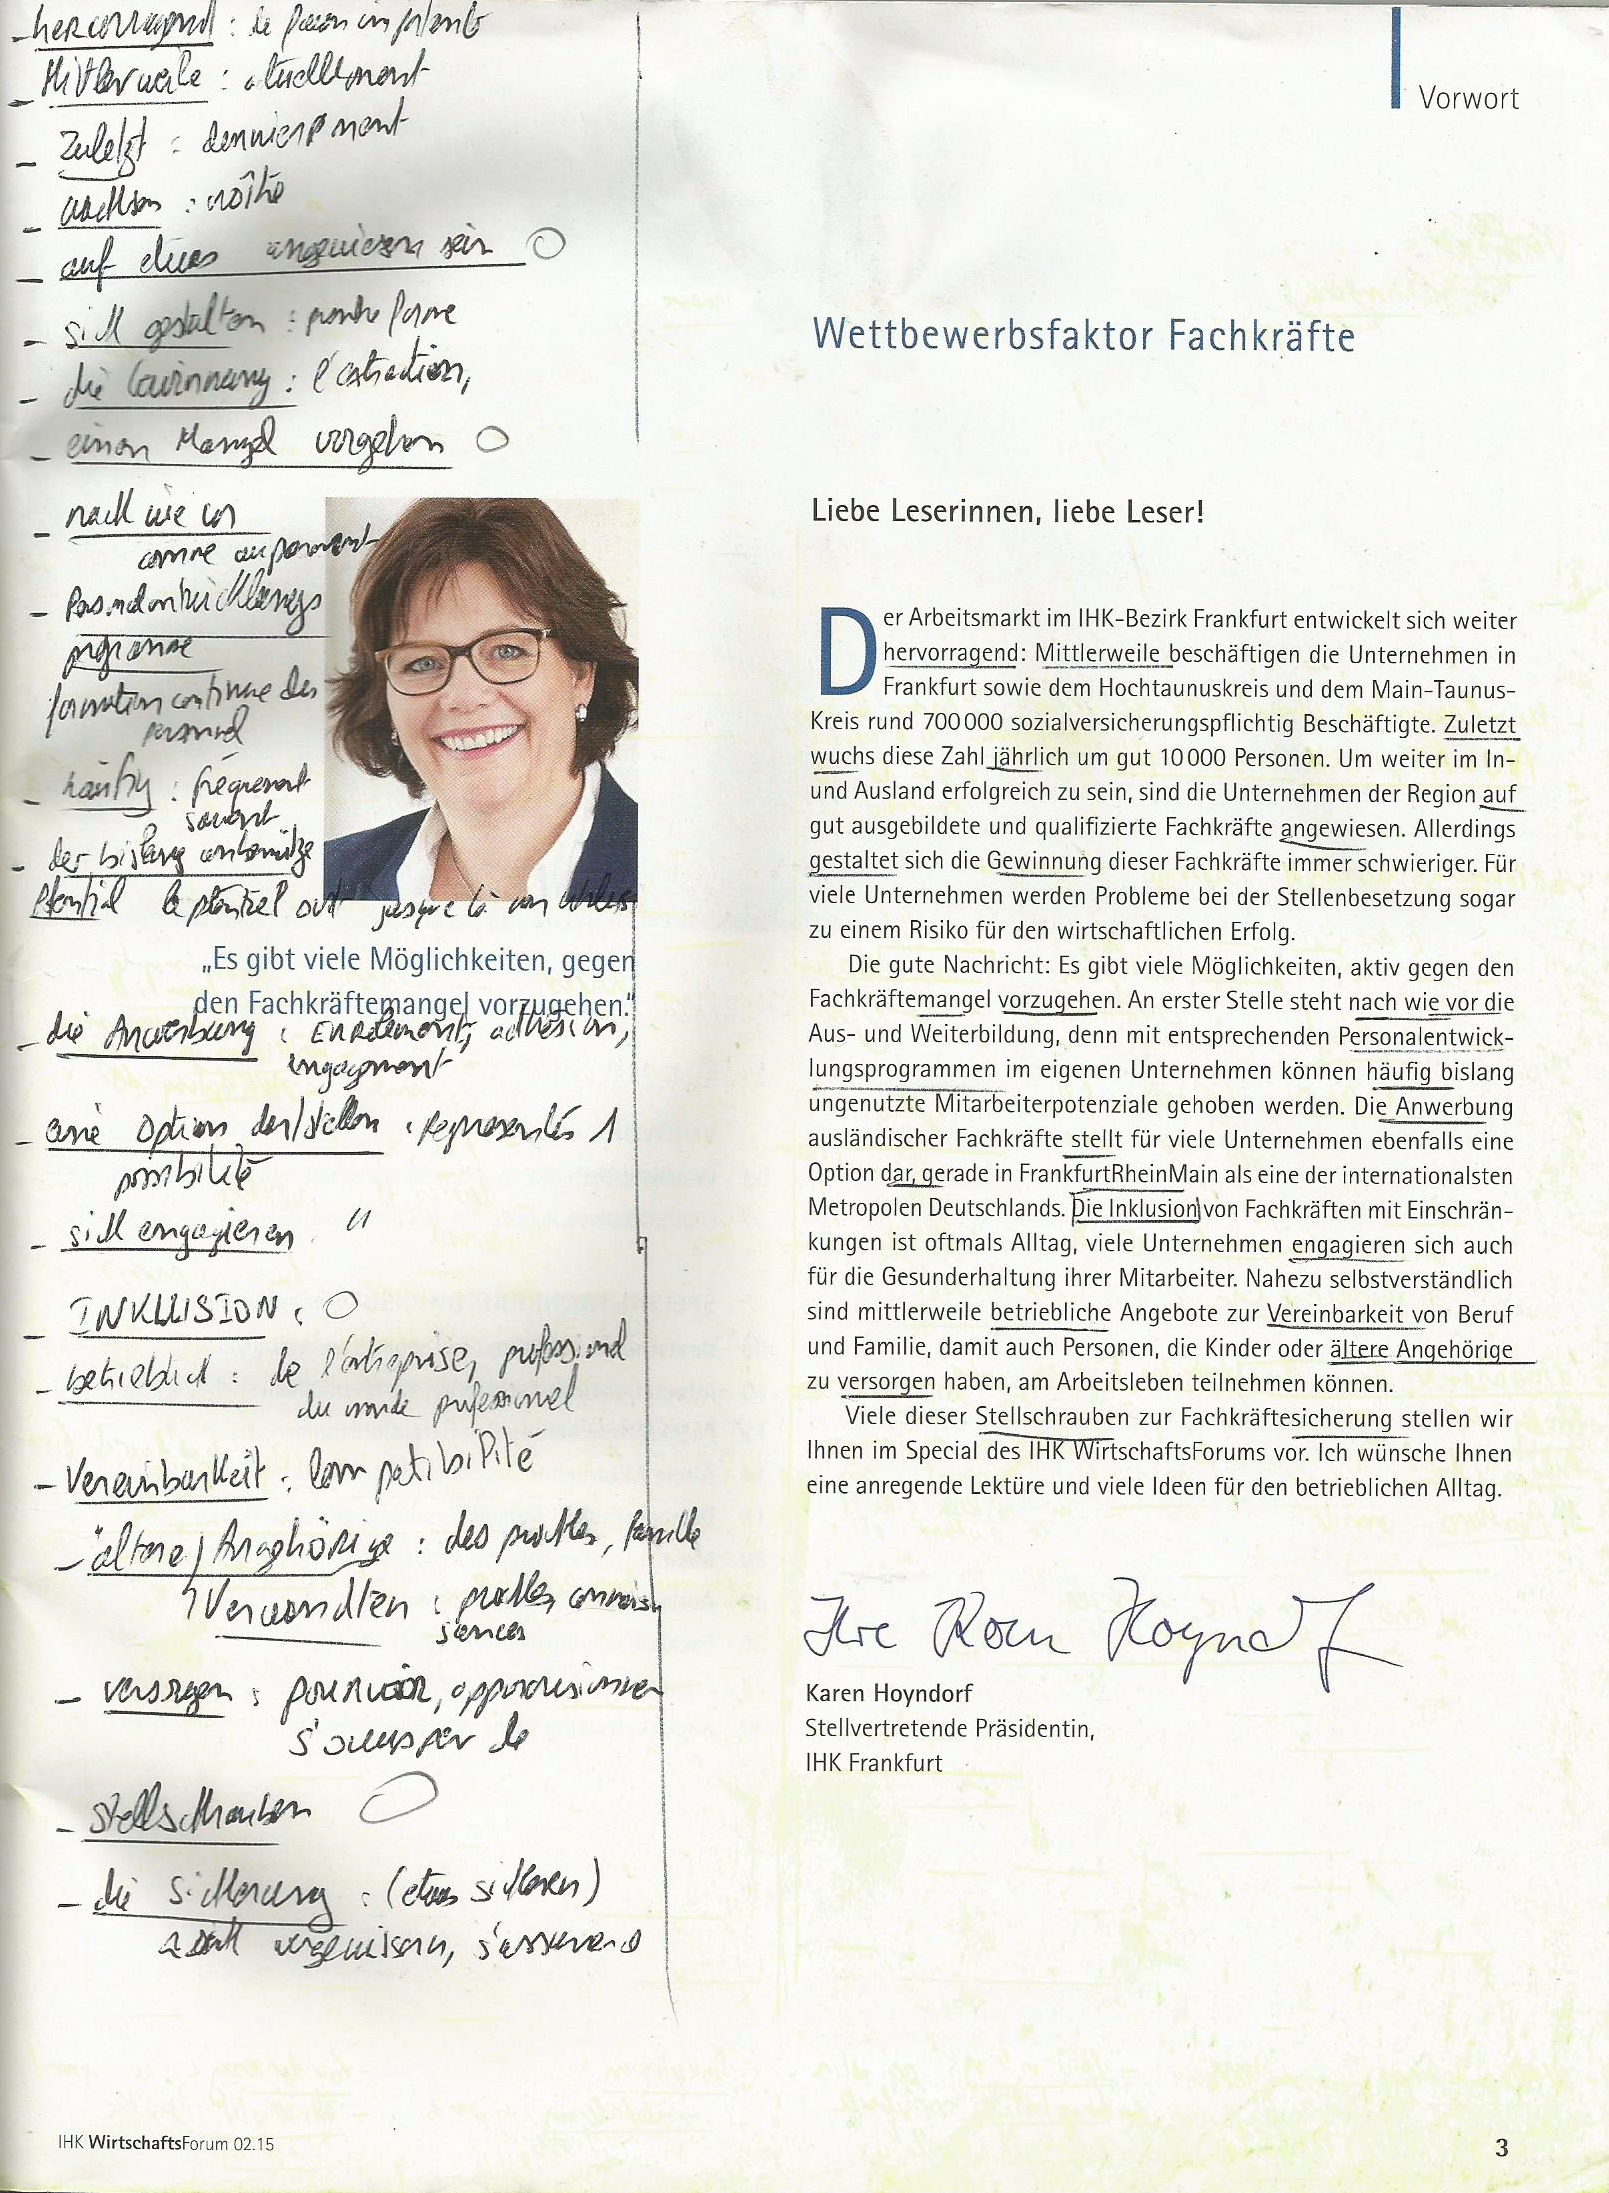 hervorragend : de façon importante
- Mittlerweile : actuellement
- Zuletzt : dernièrement
- wachsen : croître
- auf etwas angewiesen sein O
- sich gestalten : prendre forme
- die Gewinnung : l'extraction,
- einen Mangel vorgehen O
- nach wie vor
comme auparavant
- Personalentwicklungs
programme
formation continue des
personnel
- häufig : fréquent
souvent
- der bislang
Potential le potentiel jusque là non
„Es gibt viele Möglichkeiten, gegen
den Fachkräftemangel vorzugehen.“
- die Anwerbung : Enrôlement, adhésion,
engagement
- eine Option darstellen : représenter 1
possibilité
- sich engagieren "
- INKLUSION : O
- betrieblich : de l'entreprise, professionnel
du monde professionnel
- Vereinbarkeit : Compatibilité
- ältere / Angehörige : des proches, famille
Verwandten : proches, connais
sances
- versorgen : pourvoir, approvisionner
s'occuper de
- Stellschrauben O
- die Sicherung : (etwas sichern)
s'assurer
IHK WirtschaftsForum 02.15
Vorwort
Wettbewerbsfaktor Fachkräfte
Liebe Leserinnen, liebe Leser!
Der Arbeitsmarkt im IHK-Bezirk Frankfurt entwickelt sich weiter
hervorragend: Mittlerweile beschäftigen die Unternehmen in
Frankfurt sowie dem Hochtaunuskreis und dem Main-Taunus-
Kreis rund 700 000 sozialversicherungspflichtig Beschäftigte. Zuletzt
wuchs diese Zahl jährlich um gut 10 000 Personen. Um weiter im In-
und Ausland erfolgreich zu sein, sind die Unternehmen der Region auf
gut ausgebildete und qualifizierte Fachkräfte angewiesen. Allerdings
gestaltet sich die Gewinnung dieser Fachkräfte immer schwieriger. Für
viele Unternehmen werden Probleme bei der Stellenbesetzung sogar
zu einem Risiko für den wirtschaftlichen Erfolg.
Die gute Nachricht: Es gibt viele Möglichkeiten, aktiv gegen den
Fachkräftemangel vorzugehen. An erster Stelle steht nach wie vor die
Aus- und Weiterbildung, denn mit entsprechenden Personalentwick-
lungsprogrammen im eigenen Unternehmen können häufig bislang
ungenutzte Mitarbeiterpotenziale gehoben werden. Die Anwerbung
ausländischer Fachkräfte stellt für viele Unternehmen ebenfalls eine
Option dar, gerade in FrankfurtRheinMain als eine der internationalsten
Metropolen Deutschlands. Die Inklusion von Fachkräften mit Einschrän-
kungen ist oftmals Alltag, viele Unternehmen engagieren sich auch
für die Gesunderhaltung ihrer Mitarbeiter. Nahezu selbstverständlich
sind mittlerweile betriebliche Angebote zur Vereinbarkeit von Beruf
und Familie, damit auch Personen, die Kinder oder ältere Angehörige
zu versorgen haben, am Arbeitsleben teilnehmen können.
Viele dieser Stellschrauben zur Fachkräftesicherung stellen wir
Ihnen im Special des IHK WirtschaftsForums vor. Ich wünsche Ihnen
eine anregende Lektüre und viele Ideen für den betrieblichen Alltag.
Ihre Karen Hoyndorf
Karen Hoyndorf
Stellvertretende Präsidentin,
IHK Frankfurt
3